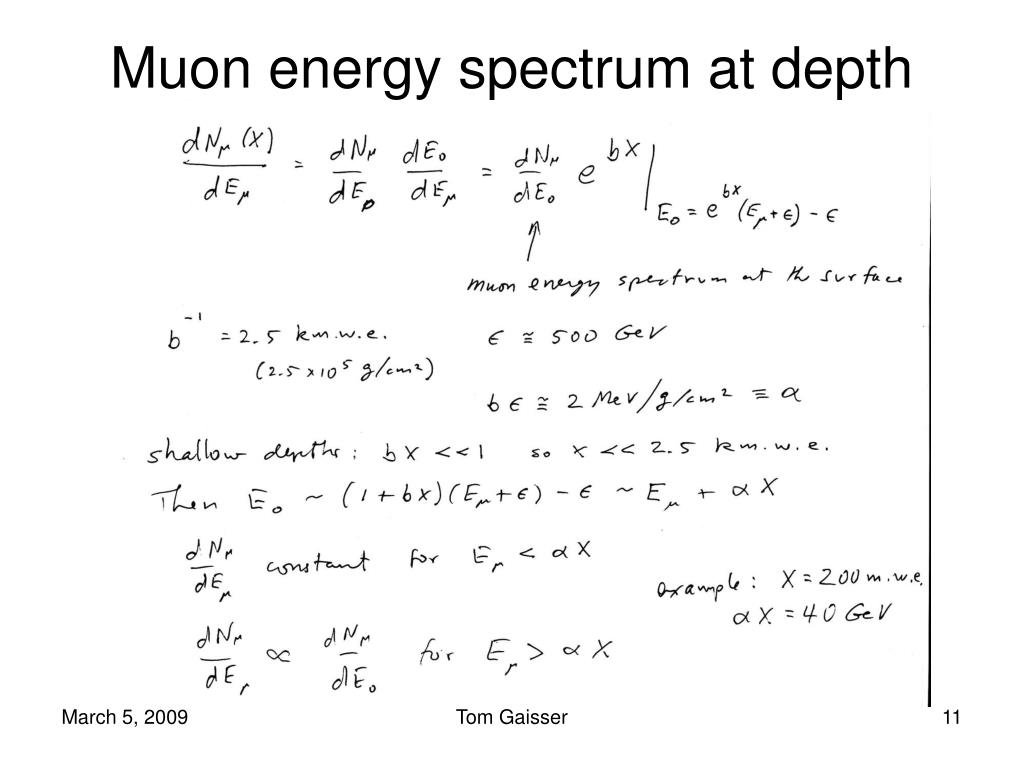 Muon energy spectrum at depth
dNμ(X)/dEμ = dNμ/dEp dE₀/dEμ = dNμ/dE₀ e^{bX} |_{E₀ = e^{bx}(Eμ+ε) - ε}
↑
muon energy spectrum at the surface
b⁻¹ = 2.5 km.w.e. ε ≅ 500 GeV
(2.5 × 10⁵ g/cm²)
bε ≅ 2 MeV/g/cm² ≡ α
shallow depths: bX << 1 so X << 2.5 km.w.e.
Then E₀ ~ (1+bx)(Eμ+ε) - ε ~ Eμ + αX
dNμ/dEμ constant for Eμ < αX
example: X = 200 m.w.e.
αX = 40 GeV
dNμ/dEμ ∝ dNμ/dE₀ for Eμ > αX
March 5, 2009 Tom Gaisser 11